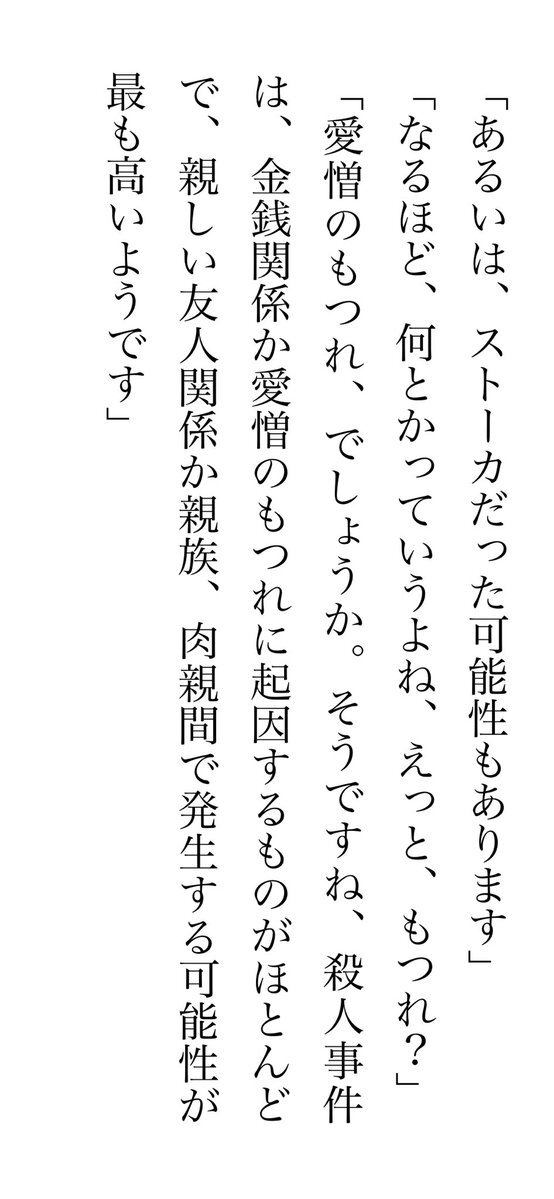 「あるいは、ストーカだった可能性もあります」
「なるほど、何とかっていうよね、えっと、もつれ？」
「愛憎のもつれ、でしょうか。そうですね、殺人事件
は、金銭関係か愛憎のもつれに起因するものがほとんど
で、親しい友人関係か親族、肉親間で発生する可能性が
最も高いようです」